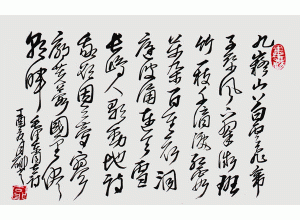 九嶷山上白雲飛帝
子乘風下翠微斑
竹一枝千滴淚紅霞
萬朵百重衣洞
庭波涌連天雪
長島人歌動地詩
我欲因之夢寥
廓芙蓉國里盡
朝暉
丁酉